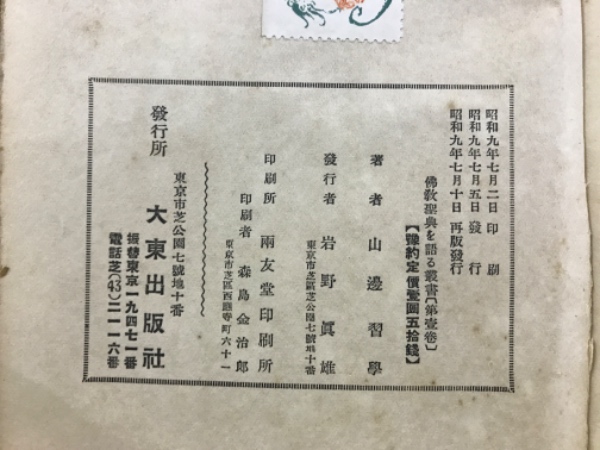 昭和九年七月二日 印刷
昭和九年七月五日 發行
昭和九年七月十日 再版發行
佛敎聖典を語る叢書〔第壹卷〕
【豫約定價壹圓五拾錢】
著者 山邊習學
發行者 岩野眞雄
東京市芝區芝公園七號地十番
印刷所 兩友堂印刷所
印刷者 森島金治郎
東京市芝區西應寺町六十一
發行所 東京市芝公園七號地十番
大東出版社
振替東京一九四七一番
電話芝(43)二一一六番